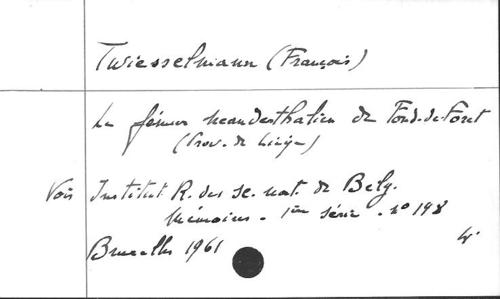 Twiesselmann (François)
Le fémur néanderthalien de Fond-de-Forêt
(Prov. de Liège)
Voir Institut R. des Sc. nat. de Belg.
Mémoires - 1ère série - n° 148
Bruxelles 1961
4°